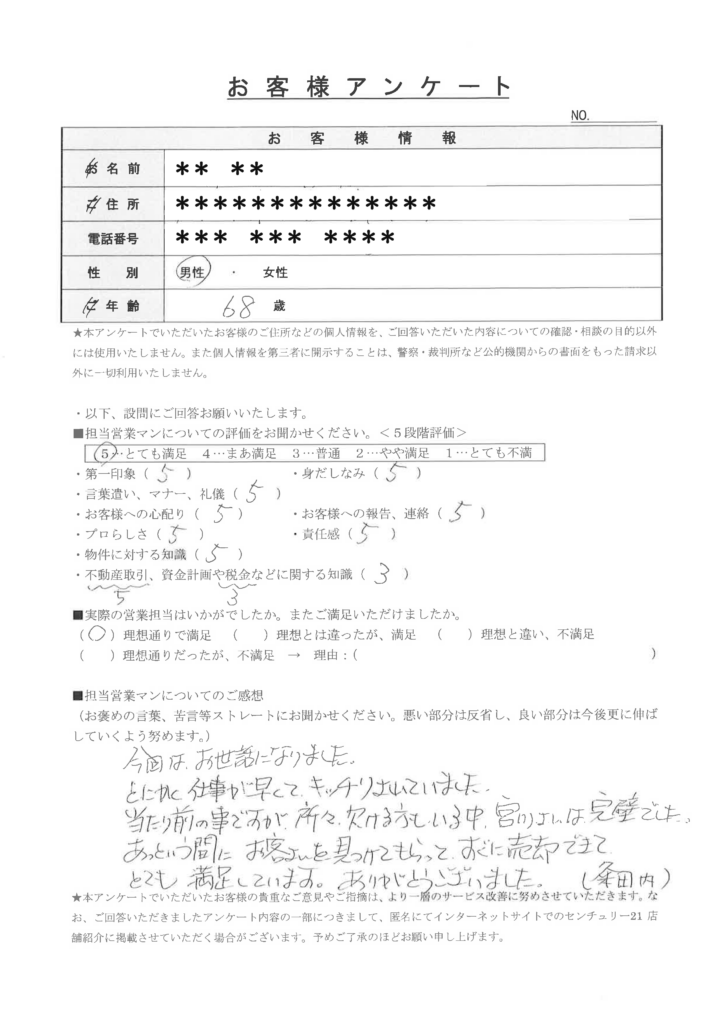 お客様アンケート
NO.
お客様情報
お名前 ** **
ご住所 **************
電話番号 *** *** ****
性別 男性 ・ 女性
ご年齢 68 歳
★本アンケートでいただいたお客様のご住所などの個人情報を、ご回答いただいた内容についての確認・相談の目的以外
には使用いたしません。また個人情報を第三者に開示することは、警察・裁判所など公的機関からの書面をもった請求以
外に一切利用いたしません。
・以下、設問にご回答お願いいたします。
■担当営業マンについての評価をお聞かせください。＜５段階評価＞
５…とても満足 ４…まあ満足 ３…普通 ２…やや満足 １…とても不満
・第一印象（ 5 ） ・身だしなみ（ 5 ）
・言葉遣い、マナー、礼儀（ 5 ）
・お客様への心配り（ 5 ） ・お客様への報告、連絡（ 5 ）
・プロらしさ（ 5 ） ・責任感（ 5 ）
・物件に対する知識（ 5 ）
・不動産取引、資金計画や税金などに関する知識（ 3 ）
5 3
■実際の営業担当はいかがでしたか。またご満足いただけましたか。
（○）理想通りで満足 （ ）理想とは違ったが、満足 （ ）理想と違い、不満足
（ ）理想通りだったが、不満足 → 理由：（ ）
■担当営業マンについてのご感想
（お褒めの言葉、苦言等ストレートにお聞かせください。悪い部分は反省し、良い部分は今後更に伸ば
していくよう努めます。）
今回は、お世話になりました。
とにかく仕事が早くて、キッチリされていました。
当たり前の事ですが、所々、欠ける方もいる中、宮川さんは、完璧でした。
あっという間に お客さんを見つけてもらって、すぐに売却できて
とても 満足しています。ありがとうございました。
★本アンケートでいただいたお客様の貴重なご意見やご指摘は、より一層のサービス改善に努めさせていただきます。な
お、ご回答いただきましたアンケート内容の一部につきまして、匿名にてインターネットサイトでのセンチュリー21 店
舗紹介に掲載させていただく場合がございます。予めご了承のほどお願い申し上げます。